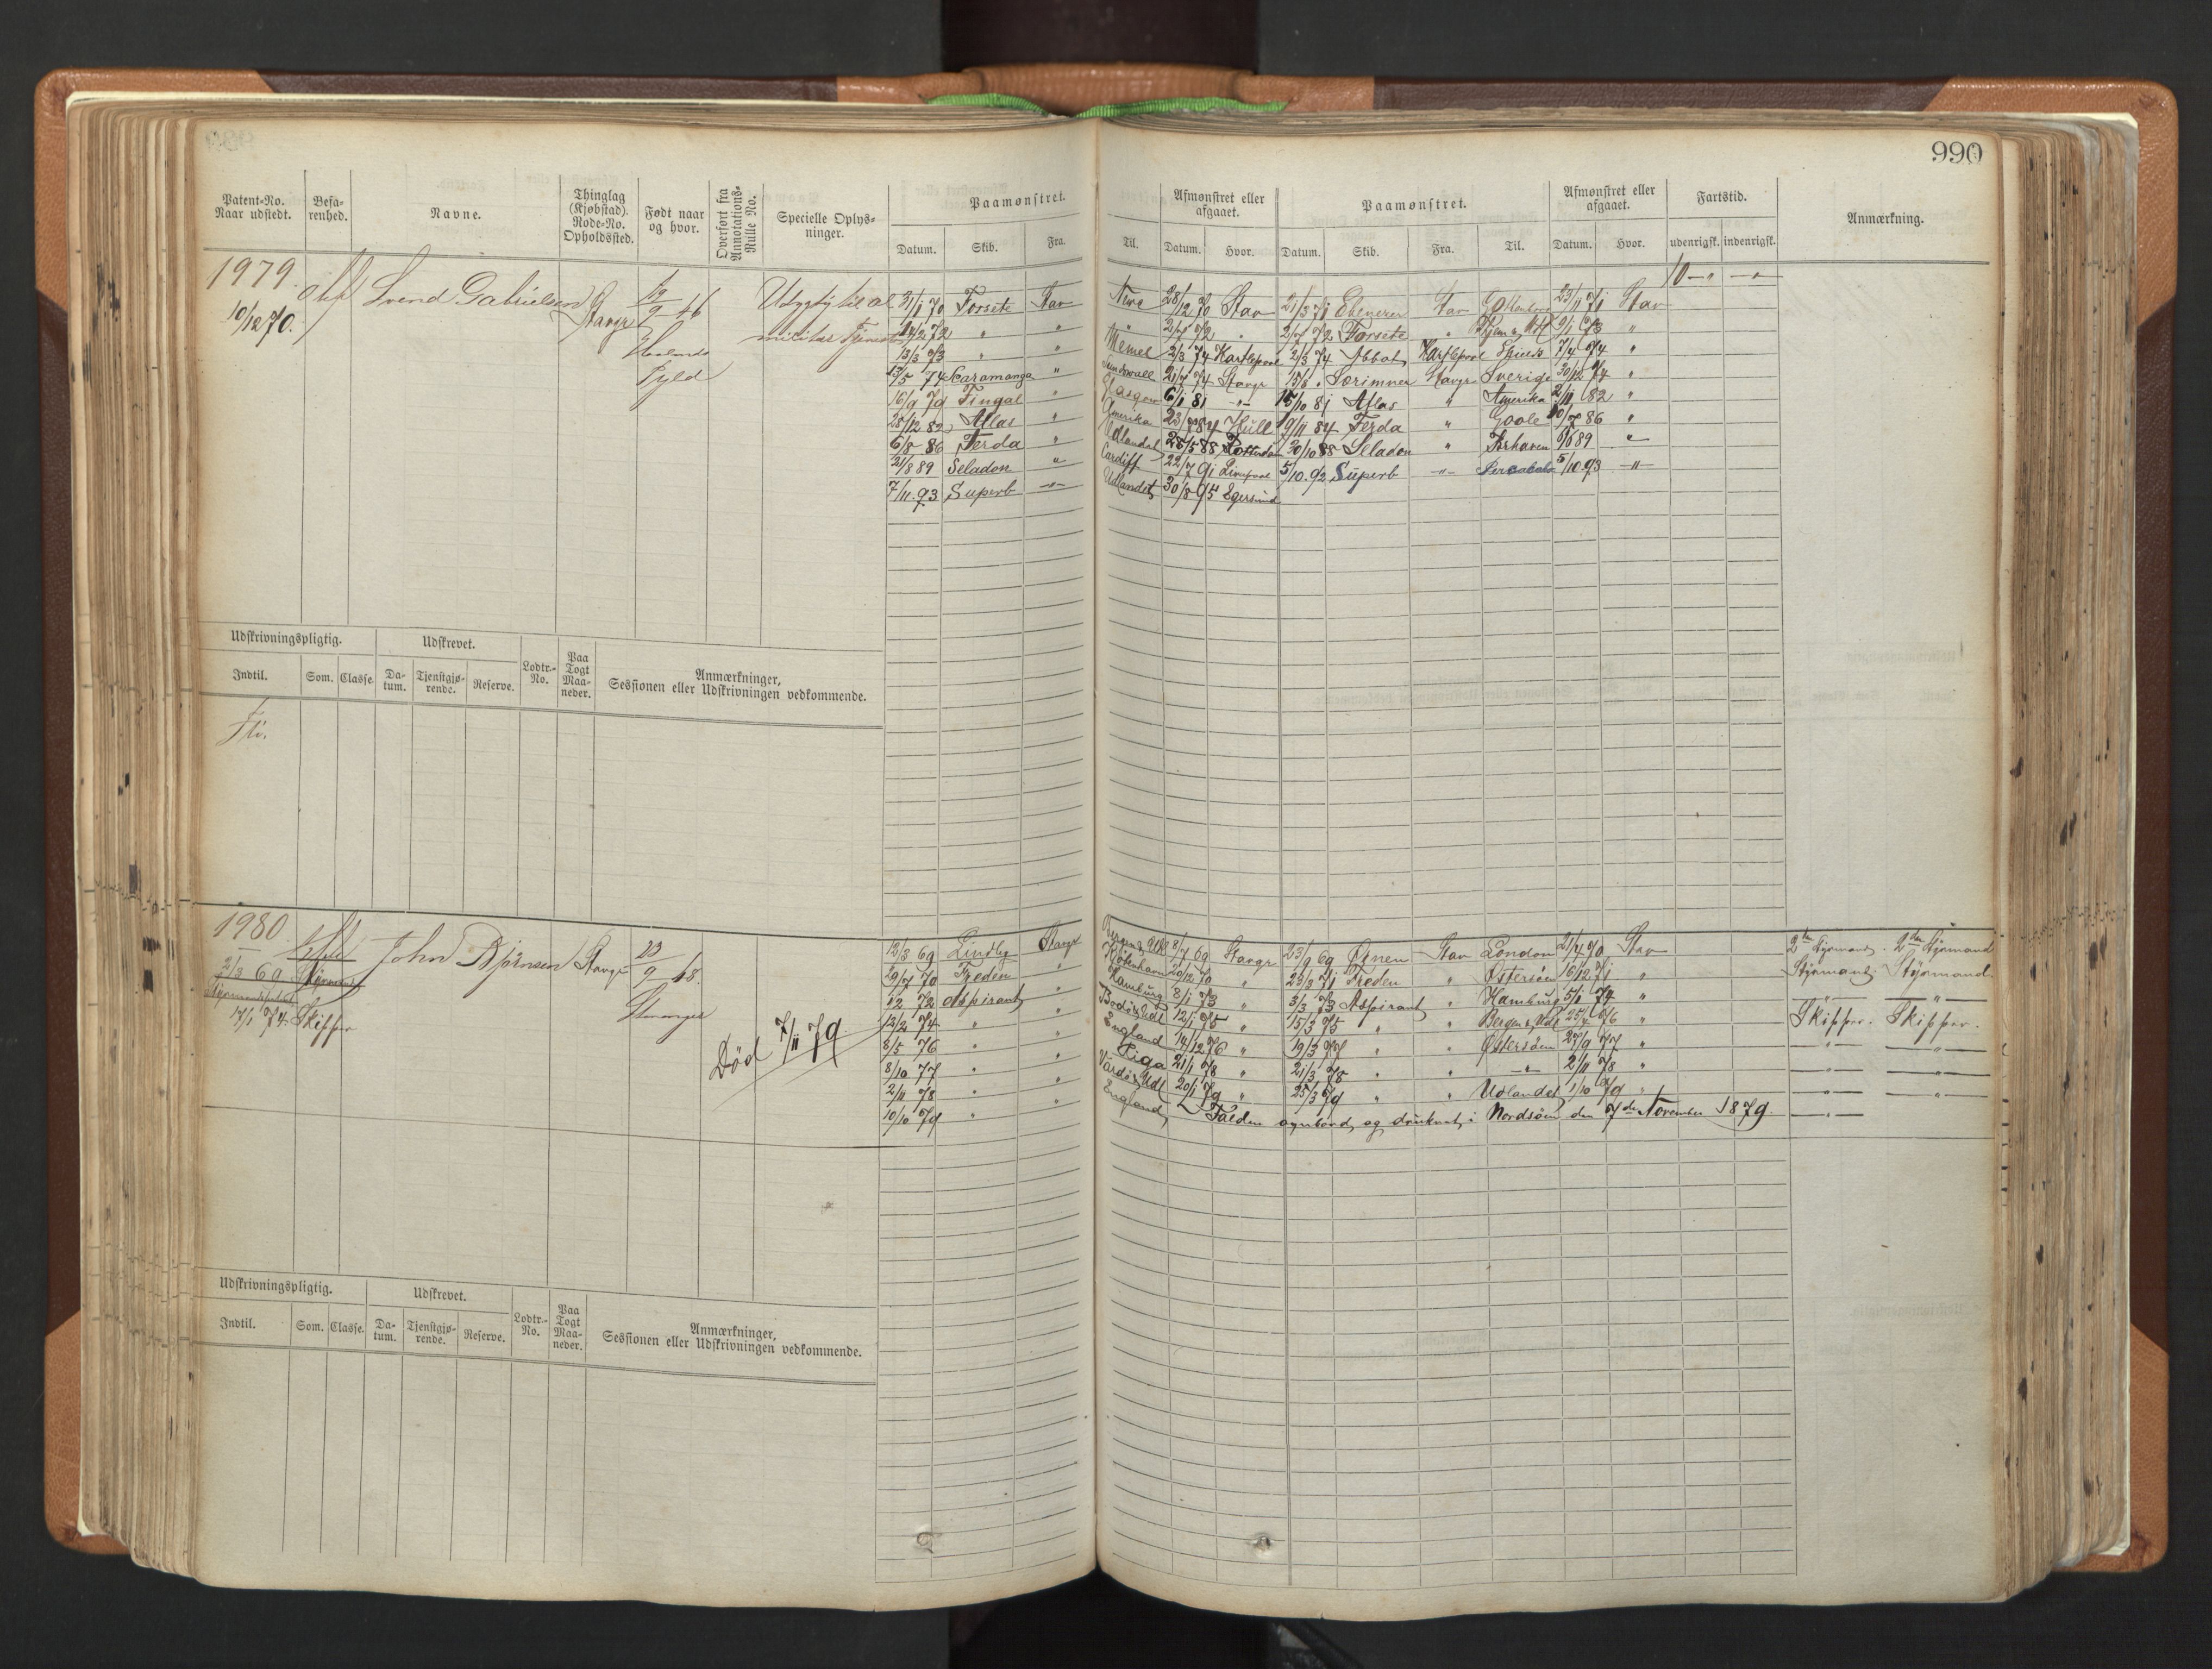 990
Patent-No. Naar udstedt.
Befarenhed.
Navne.
Thinglag (Kjøbstad). Rode-No. Opholdssted.
Født naar og hvor.
Overført fra Annotations-Rulle No.
Specielle Oplysninger.
Paamønstret.
Datum. Skib. Fra. Til.
Afmønstret eller afgaaet.
Datum. Hvor.
Paamønstret.
Datum. Skib. Fra. Til.
Afmønstret eller afgaaet.
Datum. Hvor.
Fartstid.
udenrigsk. indenrigsk.
Anmærkning.
1979
10/12 70.
Svend Gabrielsen
Stavgr
9 46
Fyld
31/1 70 Forsete Stav
28/12 70 Stav 21/3 71 Ebenezer Stav 23/11 71 Stav
14/2 72 " "
2/7 72 " 2/7 72 Forsete " 9/1 73 "
13/3 73 " " Memel 2/3 74 Hartlepool 2/3 74 Hartlepool 7/4 74 "
13/5 74 Caramanga " Sundswall 21/7 74 Stavgr 15/8 Særimner Stavgr Sverige 30/12 74 "
16/9 79 Fingal " Glasgow 6/1 81 " 15/10 81 Atlas " Amerika 2/11 82 "
28/12 82 Atlas " Amerika 23/7 84 Hull 19/11 84 Ferda " Goole 10/7 86 "
6/8 86 Ferda " Udlandet 28/5 88 Rotterdam 30/10 88 Seladon " 9/6 89 "
21/8 89 Seladon " Cardiff 22/7 91 Liverpool 5/10.92 Superb " 5/10.93 "
7/11.93 Superb " Udlandet 30/8 95 Egersund
Udskrivningspligtig.
Udskrevet.
Indtil. Som. Classe. Datum. Tjenstgjørende. Reserve.
Lodtr.-No.
Paa Togt Maaneder.
Anmærkninger, Sessionen eller Udskrivningen vedkommende.
Fri.
1980
2/3 69 Styrmand
17/1 74 Skipper
John Bjørnsen Stavgr
23
9 48.
Død 7/11 79
12/3 69 Lindby Stavgr
8/7 69 Stavgr 23/9 69 Ørnen Stav London 21/4 70 Stav 2den Styrmand. 2den Styrmand
29/7 70 Freden " Kjøbenhavn 29/12 70 " 23/3 71 Freden " Østersøen 16/12 71 " Styrmand. Styrmand.
12 72 Aspirant " Hamburg 8/1 73 " 3/3 73 Aspirant " Hamburg 5/1 74 " " "
12/2 74 " " Bodø & Udl 12/1 75 " 15/3 75 " " Bergen & Udl " Skipper. Skipper.
8/5 76 " " England 14/12 76 " 19/3 77 " " Østersøen 27/9 77 " " "
8/10 77 " " Riga 21/1 78 " 21/3 78 " " " 2/11 78 " " "
2/11 78 " " Vardø & Udl 20/1 79 " 25/3 79 " " Udlandet 1/10 79 " " "
10/10 79 " " England, Falden overbord og druknet i Nordsøen den 7de November 1879. "
Udskrivningspligtig.
Udskrevet.
Indtil. Som. Classe. Datum. Tjenstgjørende. Reserve.
Lodtr.-No.
Paa Togt Maaneder.
Anmærkninger, Sessionen eller Udskrivningen vedkommende.